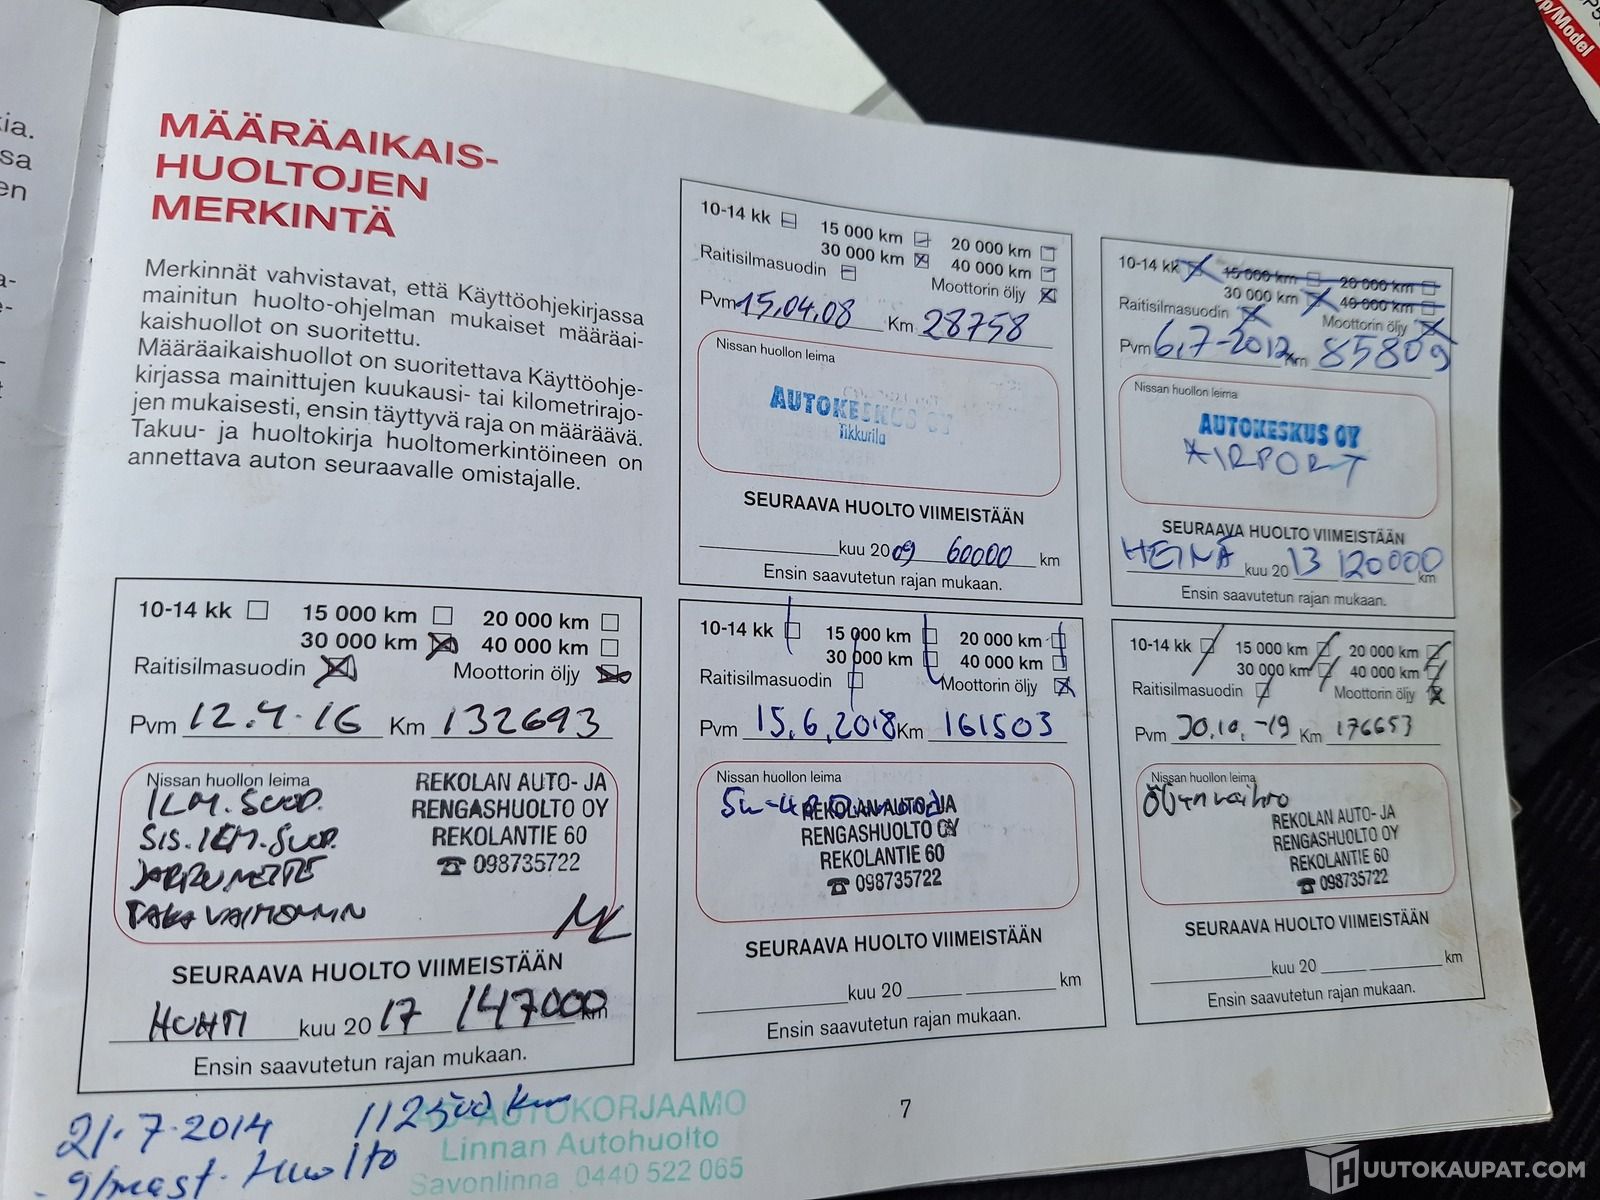 kia.
sa
en
MÄÄRÄAIKAIS-
HUOLTOJEN
MERKINTÄ
Merkinnät vahvistavat, että Käyttöohjekirjassa
mainitun huolto-ohjelman mukaiset määräai-
kaishuollot on suoritettu.
Määräaikaishuollot on suoritettava Käyttöohje-
kirjassa mainittujen kuukausi- tai kilometrirajo-
jen mukaisesti, ensin täyttyvä raja on määräävä.
Takuu- ja huoltokirja huoltomerkintöineen on
annettava auton seuraavalle omistajalle.
10-14 kk 15 000 km 20 000 km
30 000 km 40 000 km
Raitisilmasuodin Moottorin öljy
Pvm 15.04.08 Km 28758
Nissan huollon leima
AUTOKESKUS OY
Tikkurila
SEURAAVA HUOLTO VIIMEISTÄÄN
kuu 20 09 60000 km
Ensin saavutetun rajan mukaan.
10-14 kk 15 000 km 20 000 km
30 000 km 40 000 km
Raitisilmasuodin Moottorin öljy
Pvm 6.7-2012 Km 85809
Nissan huollon leima
AUTOKESKUS OY
AIRPORT
SEURAAVA HUOLTO VIIMEISTÄÄN
HEINÄ kuu 20 13 120000 km
Ensin saavutetun rajan mukaan.
10-14 kk 15 000 km 20 000 km
30 000 km 40 000 km
Raitisilmasuodin Moottorin öljy
Pvm 12.4.16 Km 132693
Nissan huollon leima
ILM.SUOD.
SIS.ILM.SUOD.
JARRUNESTE
TAKAVAIMENNIN
REKOLAN AUTO- JA
RENGASHUOLTO OY
REKOLANTIE 60
☎ 098735722
SEURAAVA HUOLTO VIIMEISTÄÄN
HUHTI kuu 20 17 147000 km
Ensin saavutetun rajan mukaan.
10-14 kk 15 000 km 20 000 km
30 000 km 40 000 km
Raitisilmasuodin Moottorin öljy
Pvm 15.6.2018 Km 161503
Nissan huollon leima
REKOLAN AUTO- JA
RENGASHUOLTO OY
REKOLANTIE 60
☎ 098735722
SEURAAVA HUOLTO VIIMEISTÄÄN
kuu 20 km
Ensin saavutetun rajan mukaan.
10-14 kk 15 000 km 20 000 km
30 000 km 40 000 km
Raitisilmasuodin Moottorin öljy
Pvm 30.10.-19 Km 176653
Nissan huollon leima
Öljynvaihto
REKOLAN AUTO- JA
RENGASHUOLTO OY
REKOLANTIE 60
☎ 098735722
SEURAAVA HUOLTO VIIMEISTÄÄN
kuu 20 km
Ensin saavutetun rajan mukaan.
21.7.2014 112500 km
Huolto
AD-AUTOKORJAAMO
Linnan Autohuolto
Savonlinna 0440 522 065
7
p/Model
HUUTOKAUPAT.COM